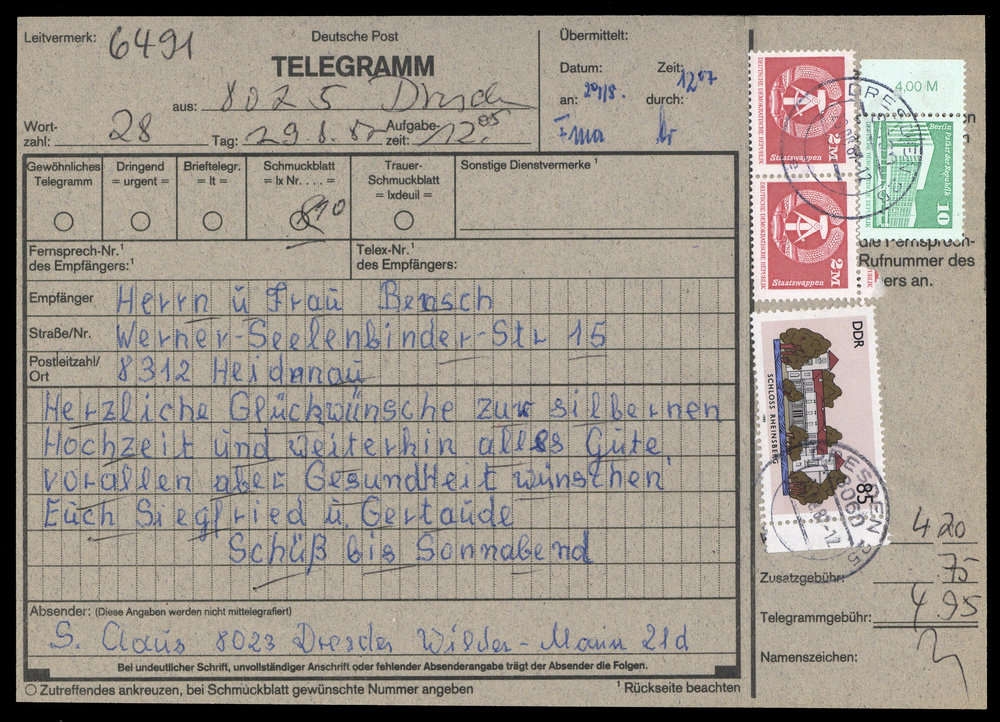 Leitvermerk: 6491
Deutsche Post
TELEGRAMM
aus: 8025 Dresden
Wort-
zahl: 28
Tag: 29.8.82
Aufgabe-
zeit: 12.05
Übermittelt:
Datum: Zeit:
an: durch: 12 07
Gewöhnliches
Telegramm
Dringend
= urgent =
Brieftelegr.
= lt =
Schmuckblatt
= lx Nr. . . . . =
Trauer-
Schmuckblatt
= lxdeuil =
Sonstige Dienstvermerke ¹
Fernsprech-Nr.¹
des Empfängers:¹
Telex-Nr.¹
des Empfängers:
Empfänger Herrn ü Fraü Bensch
Straße/Nr. Werner-Seelenbinder-Str 15
Postleitzahl/
Ort 8312 Heidenaü
Herzliche Glückwünsche zur silbernen
Hochzeit ünd weiterhin alles Güte
vorallen aber Gesundheit wünschen
Eüch Siegfried ü. Gertaüde
Schüß bis Sonnabend
Absender: (Diese Angaben werden nicht mittelegrafiert)
S. Claus 8023 Dresden Wilder-Mann 21d
Bei undeutlicher Schrift, unvollständiger Anschrift oder fehlender Absenderangabe trägt der Absender die Folgen.
Zutreffendes ankreuzen, bei Schmuckblatt gewünschte Nummer angeben
¹ Rückseite beachten
DEUTSCHE DEMOKRATISCHE REPUBLIK
Staatswappen 2M
DEUTSCHE DEMOKRATISCHE REPUBLIK
Staatswappen 2M
4,00 M
Berlin, Palast der Republik
10
DRESDEN
die Fernsprech-
Rufnummer des
ers an.
DDR
SCHLOSS RHEINSBERG
85
DRESDEN 25
8060
4 20
Zusatzgebühr: 75
Telegrammgebühr: 4.95
Namenszeichen: